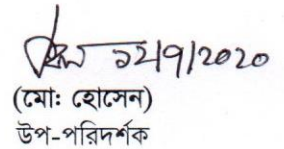 ১২/৭/২০২০
(মোঃ হোসেন)
উপ-পরিদর্শক